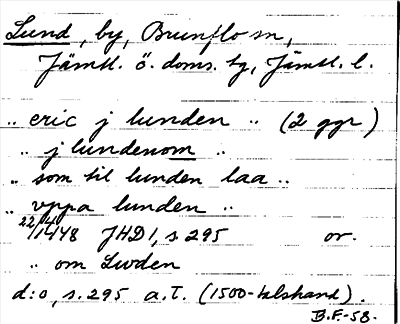 Lund, by, Brunflo sn,
Jämtl. ö. doms. tg, Jämtl. l.
.. eric j lunden .. (2 ggr)
.. j lundenom ..
.. som til lunden laa ..
.. vppa lunden ..
22/4 1448 JHD1, s. 295 or.
.. om Lwden
d:o, s. 295 a.T. (1500-talshand).
B.F.-58.